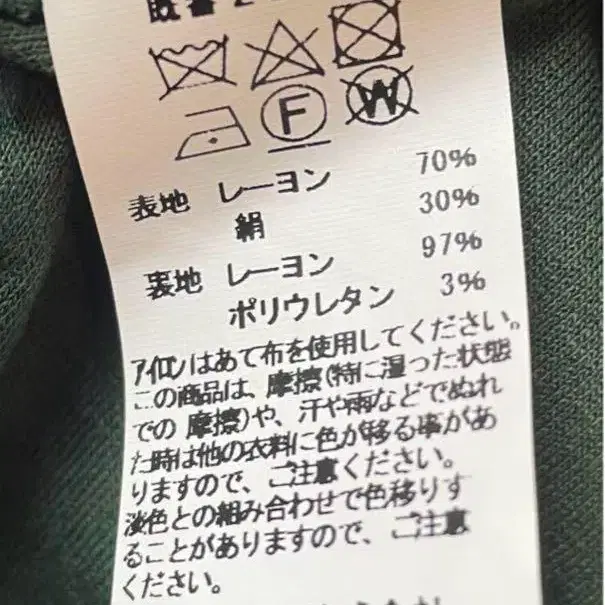 F W
表地 レーヨン 70%
絹 30%
裏地 レーヨン 97%
ポリウレタン 3%
アイロンはあて布を使用してください。
この商品は、摩擦(特に湿った状態
での 摩擦)や、汗や雨などでぬれ
た時は他の衣料に色が移る事があ
りますので、ご注意ください。
淡色との組み合わせで色移りす
ることがありますので、ご注意
ください。